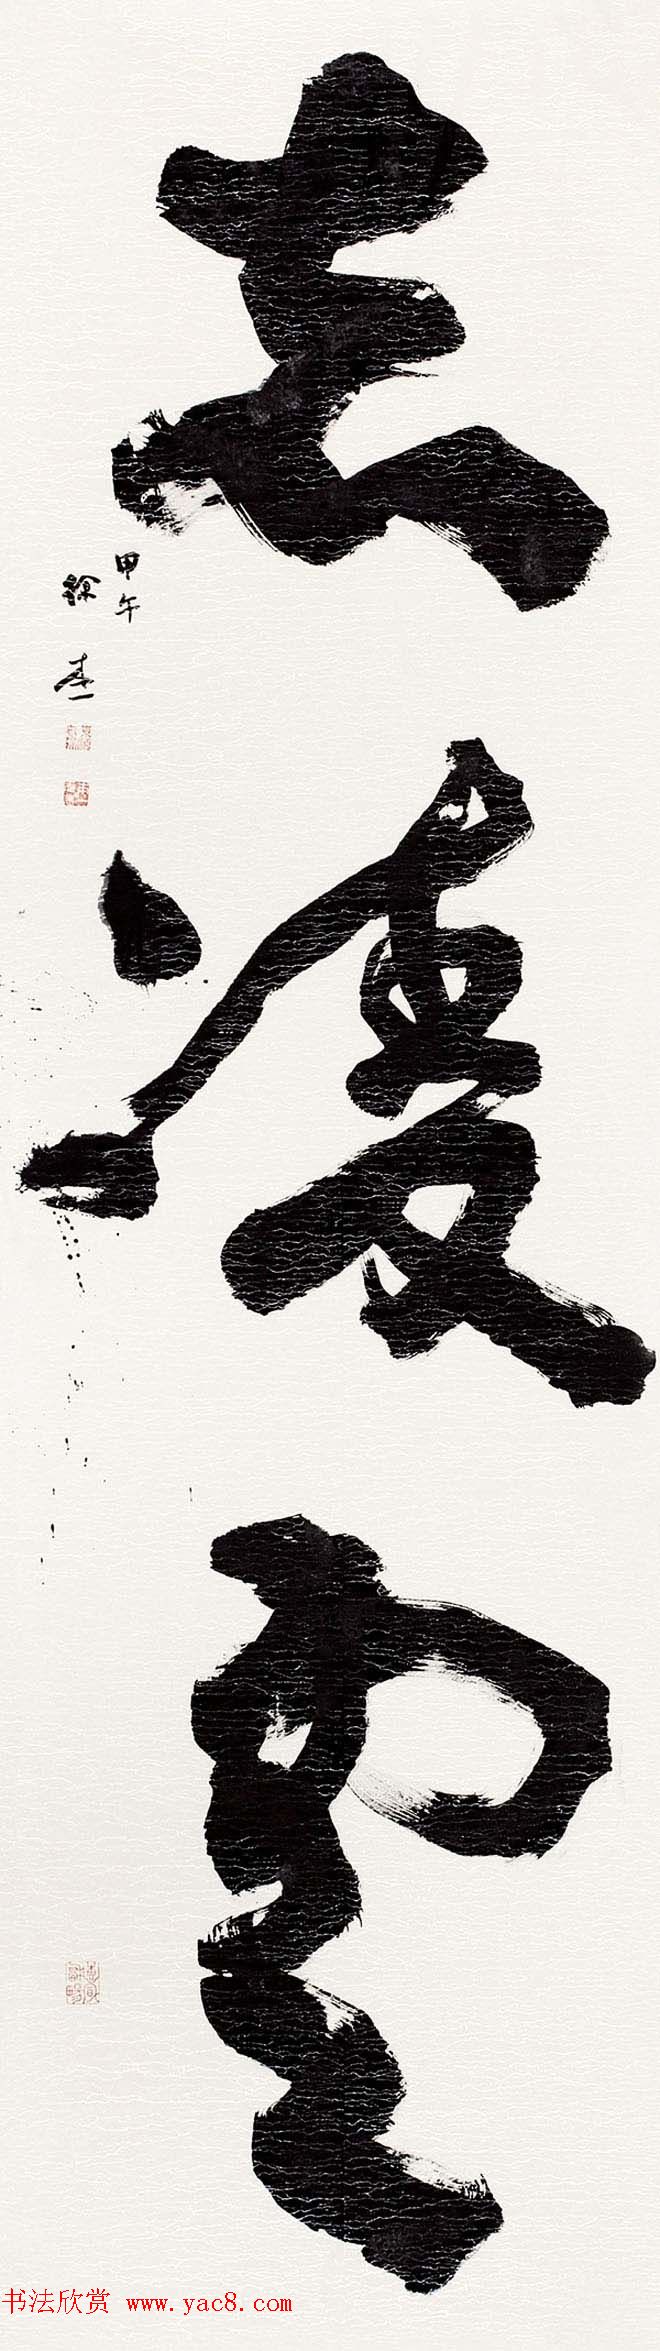 志凌雲
甲午
徐
书法欣赏 www.yac8.com